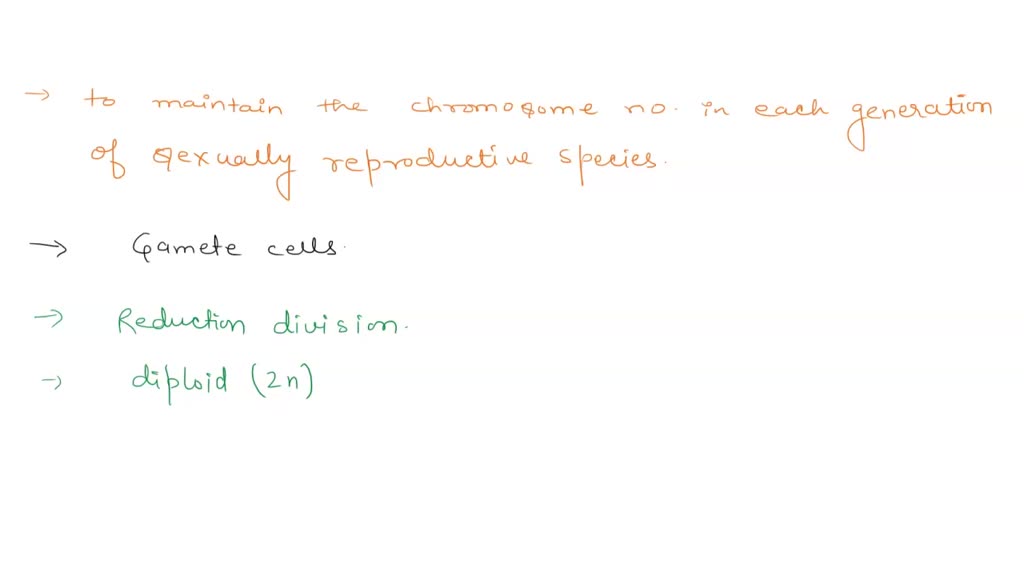 → to maintain the chromosome no. in each generation
of sexually reproductive species.
→ Gamete cells.
→ Reduction division.
→ diploid (2n)